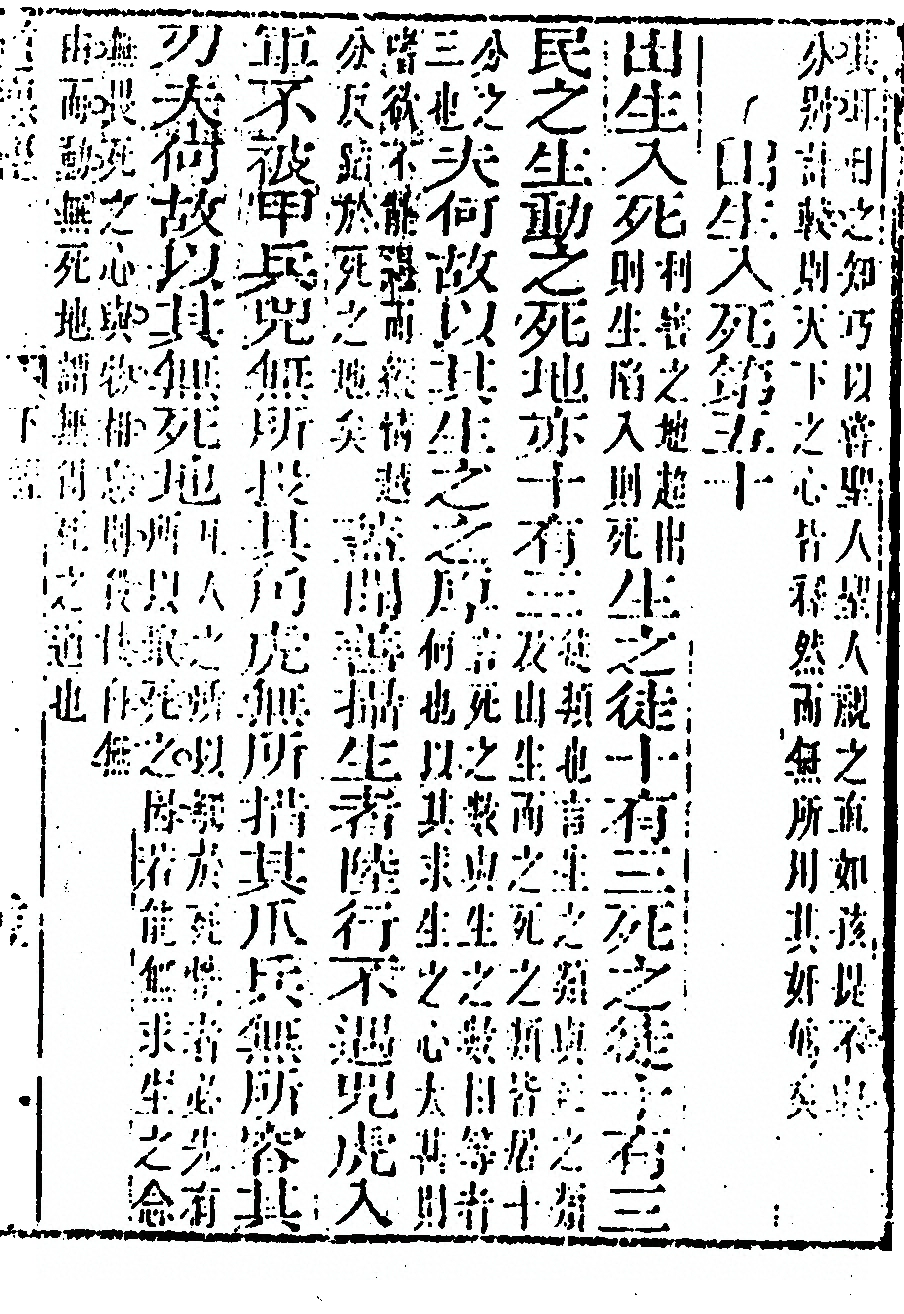 其耳目之知巧以當聖人聖人視之直如孩提不與
分別計較則天下之心皆釋然而無所用其奸偽矣
出生入死第五十
出生入死利害之地超出則生陷入則死生之徒十有三死之徒十有三
民之生動之死地亦十有三徒類也言生之類與死之類及由生而之死之類皆居十
分之三也夫何故以其生生之厚言死之數與生之數相等者何也以其求生之心太甚則
嗜欲不能遏而縱情越分反蹈於死之地矣蓋聞善攝生者陸行不遇兕虎入
軍不被甲兵兕無所投其角虎無所措其爪兵無所容其
刃夫何故以其無死地凡人之所以輒於死者必先有所以取死之若能無求生之念
無畏死之心與物相忘則彼使自無由而動無死地謂無得死之道也